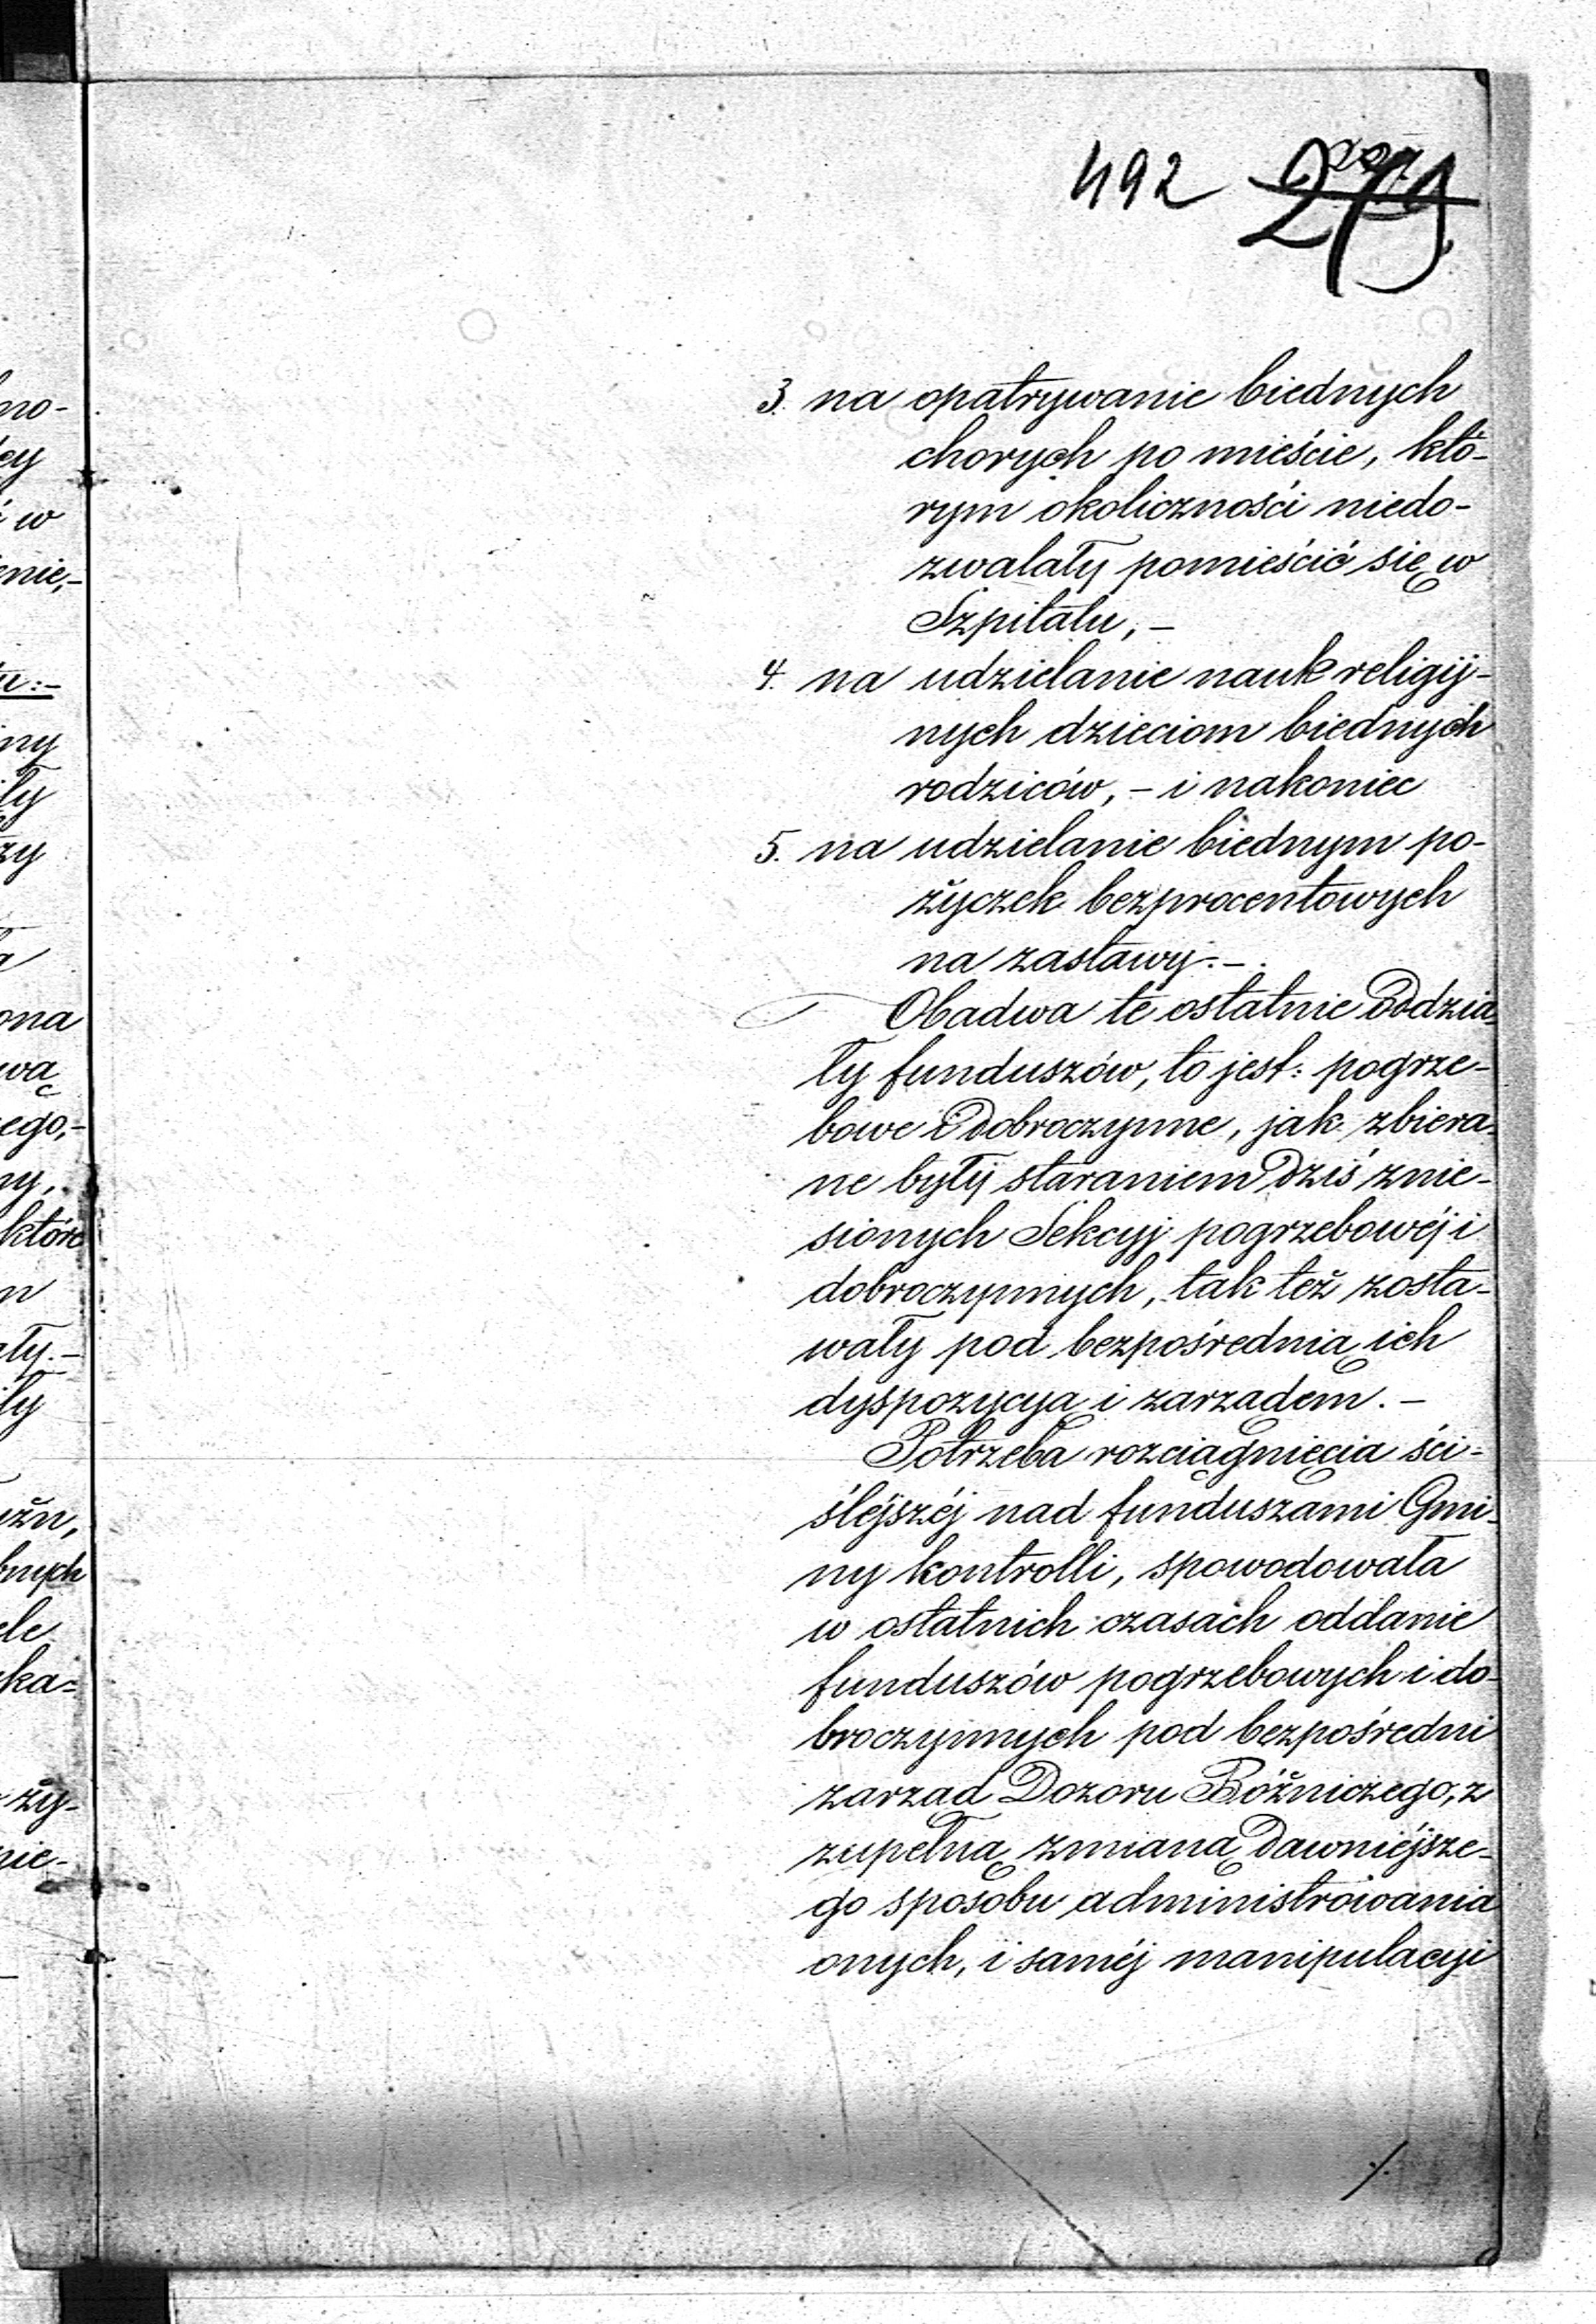 492 279
3. na opatrywanie biednych
chorych po mieście, któ-
rym okoliczności niedo-
zwalały pomieścić się w
Szpitalu, –
4. na udzielanie nauk religij-
nych dzieciom biednych
rodziców, – i nakoniec
5. na udzielanie biednym po-
życzek bezprocentowych
na zastawy. –
Obadwa te ostatnie oddzia-
ły funduszów, to jest: pogrze-
bowe i dobroczynne, jak zbiera-
ne były staraniem dziś znie-
sionych Sekcyj pogrzebowéj i
dobroczynnych, tak też zosta-
wały pod bezpośrednią ich
dyspozycyą i zarządem. –
Potrzeba rozciągnięcia ści-
ślejszéj nad funduszami Gmi-
ny kontrolli, spowodowała
w ostatnich czasach oddanie
funduszów pogrzebowych i do-
broczynnych pod bezpośredni
zarząd Dozoru Bóżniczego, z
zupełną zmianą dawniéjsze-
go sposobu administrowania
onych, i saméj manipulacyi